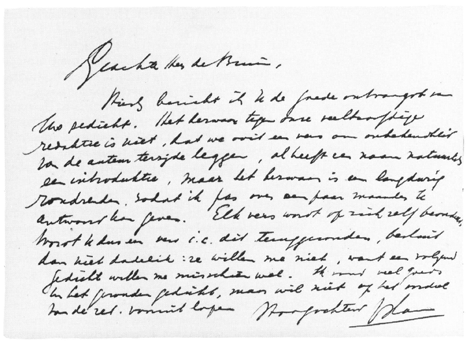 Geachte Heer de Bruin,
Hierbij bericht ik U de goede ontvangst van
Uw gedicht. Het bezwaar tegen onze veelhoofdige
redaktie is niet, dat we ooit een vers om onbekendheid
van de auteur terzijde leggen, al heeft een naam natuurlijk
een introduktie, maar het bezwaar is een langdurig
rondzenden, zodat ik pas over een paar maanden
antwoord kan geven. Elk vers wordt op zich zelf
Wordt U dus een vers i.c. dit teruggezonden, besluit
dan niet dadelijk: ze willen me niet, want een volgend
gedicht willen ze misschien wel. Ik vond veel goeds
in het gezonden gedicht, maar wil niet op het oordeel
van de red. vooruit lopen Hoogachtend